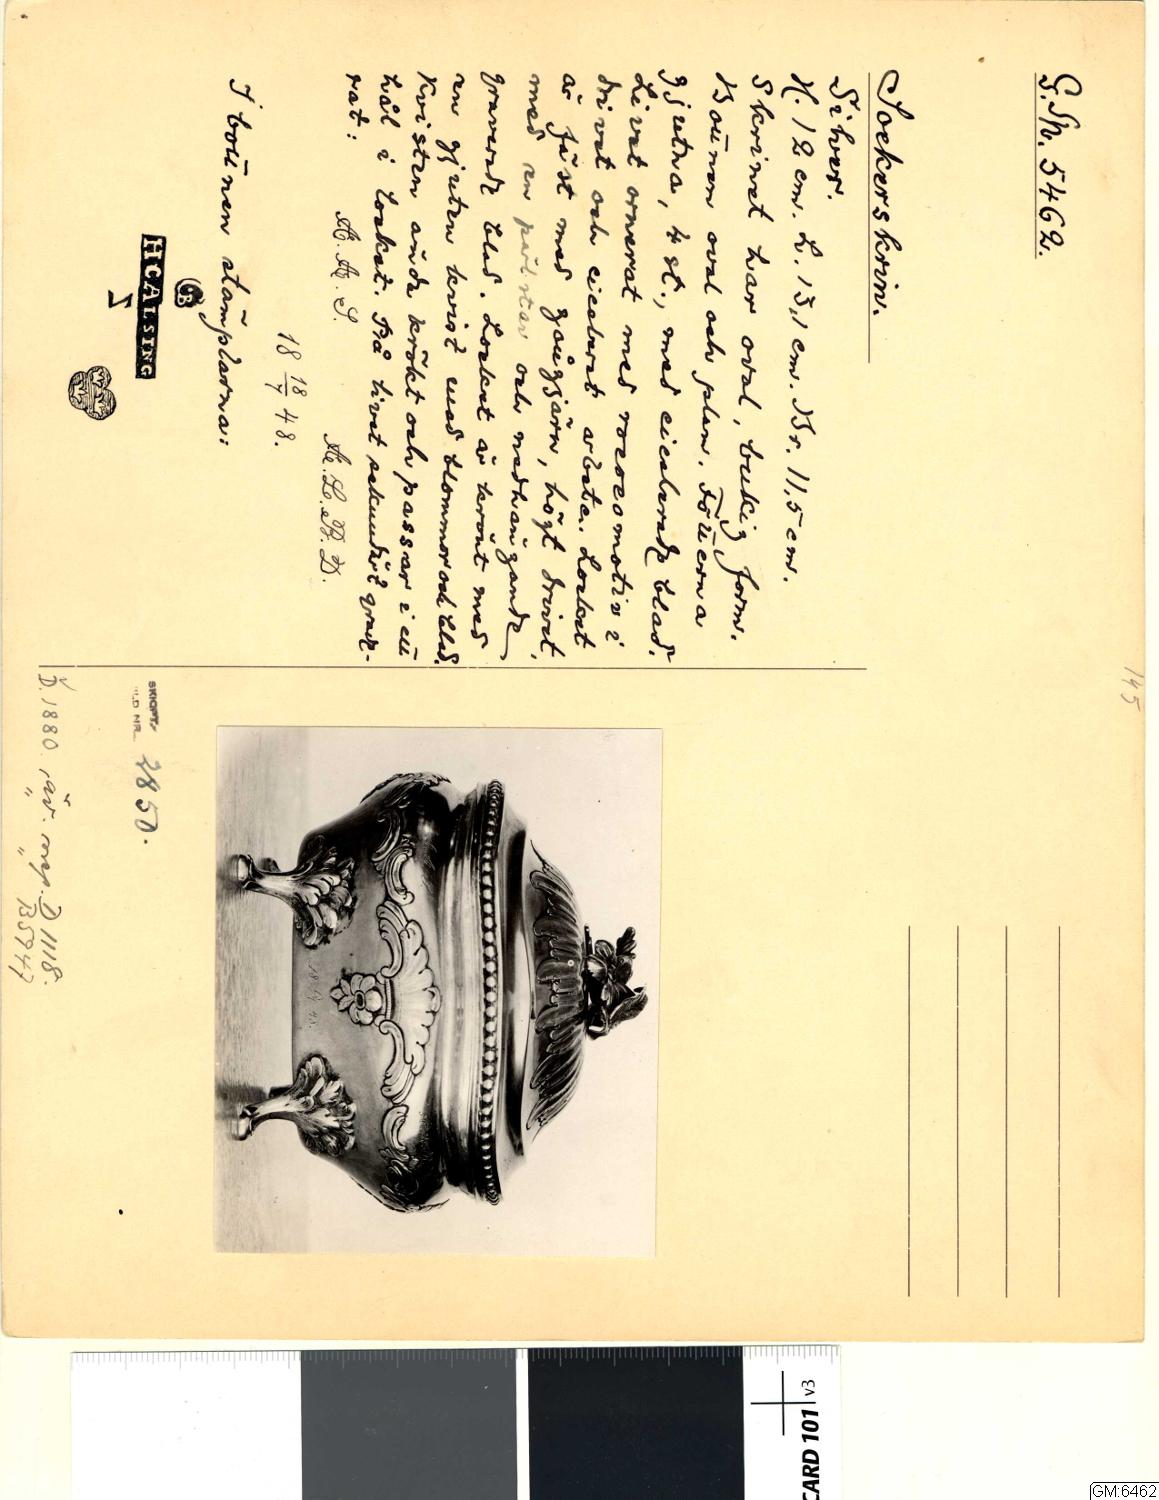 G.Sh. 5462.
145
Sockerskrin.
Silver.
H. 12 cm. L. 13,1 cm. Br. 11,5 cm.
Skrinet har oval, bukig form.
Bottnen oval och plan. Fötterna
gjutna, 4 st., med ciselerade blad.
Livet ornerat med rococomotiv i
drivet och ciselerat arbete. Locket
är fäst med gångjärn, högt drivet,
med en pärlstav och nedhängande
graverade blad. Locket är krönt med
en gjuten kvist med blommor och blad.
Kvistens ände krökt och passar i ett
hål i locket. På livet sekundärt grave-
rat:
A. A. S. A. L. B. D.
18 18/7 48.
I bottnen stämplarna:
HCALSING
SKIOPT.
LD NR 2850.
D. 1880 rär. neg. D 1118.
" " B5947
18 18/7 48.
CARD 101 v3
GM:6462